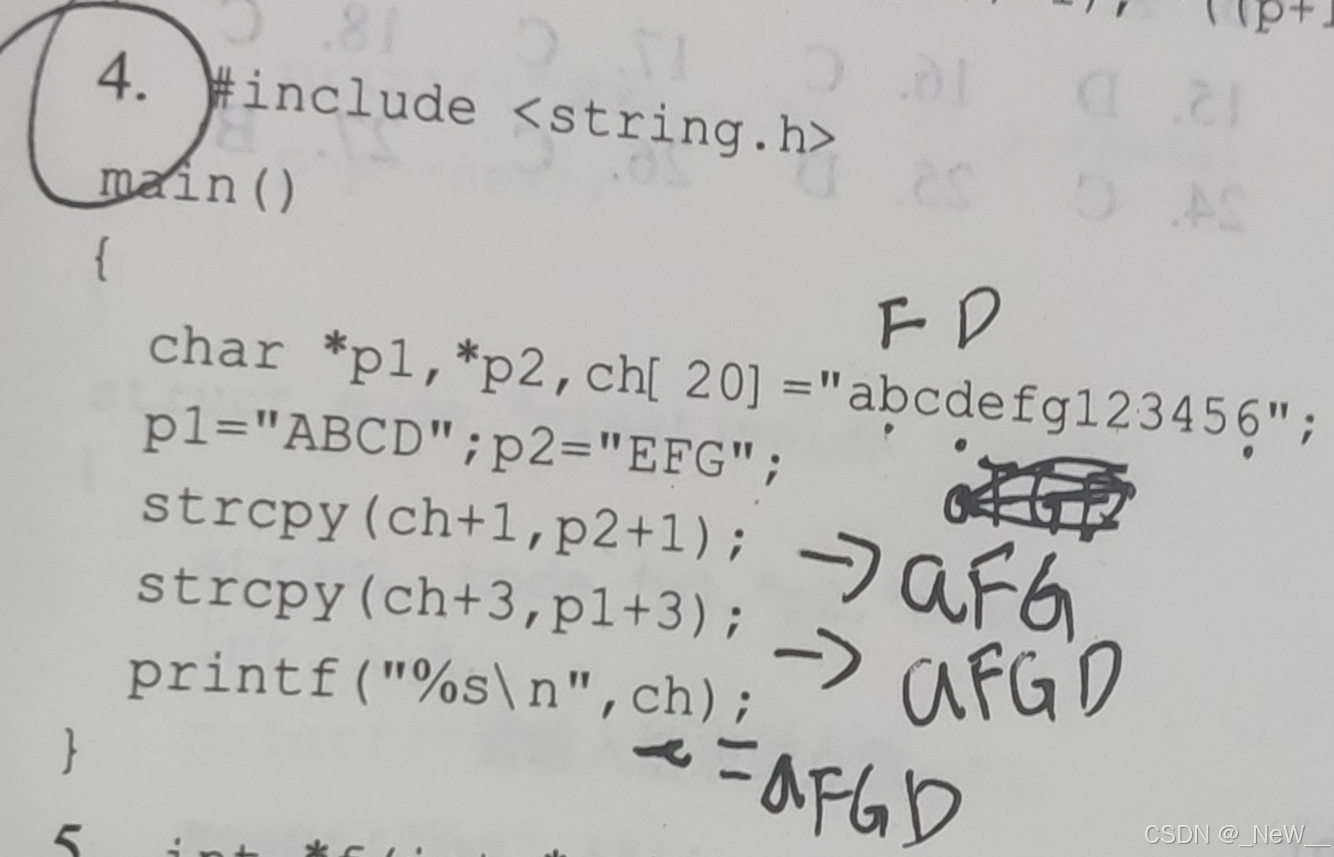 ((p+1
18. C
15. D 16. C 17. C
4. #include <string.h>
24. C 25. D 26. C 27. B
main()
{
F D
char *p1,*p2,ch[ 20] ="abcdefg123456";
p1="ABCD";p2="EFG";
strcpy(ch+1,p2+1); → aFG
strcpy(ch+3,p1+3); → aFGD
printf("%s\n",ch);
= aFGD
}
5
CSDN @_NeW__